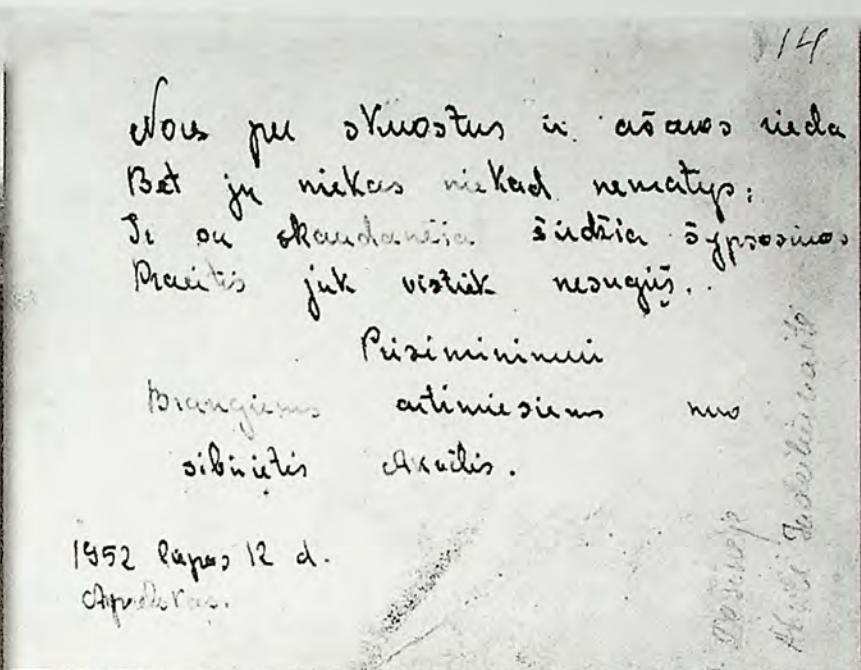 14
Nors per skruostus ir ašaros rieda
Bet jų niekas niekad nematys;
Ir su skaudančia širdžia šypsosimos
Praeitis juk vistiek nesugrįš..
Prisiminimui
Brangiems artimiesiems nuo
sibirietės Akvilės.
1952 Lapas 12 d.
Dešinėje